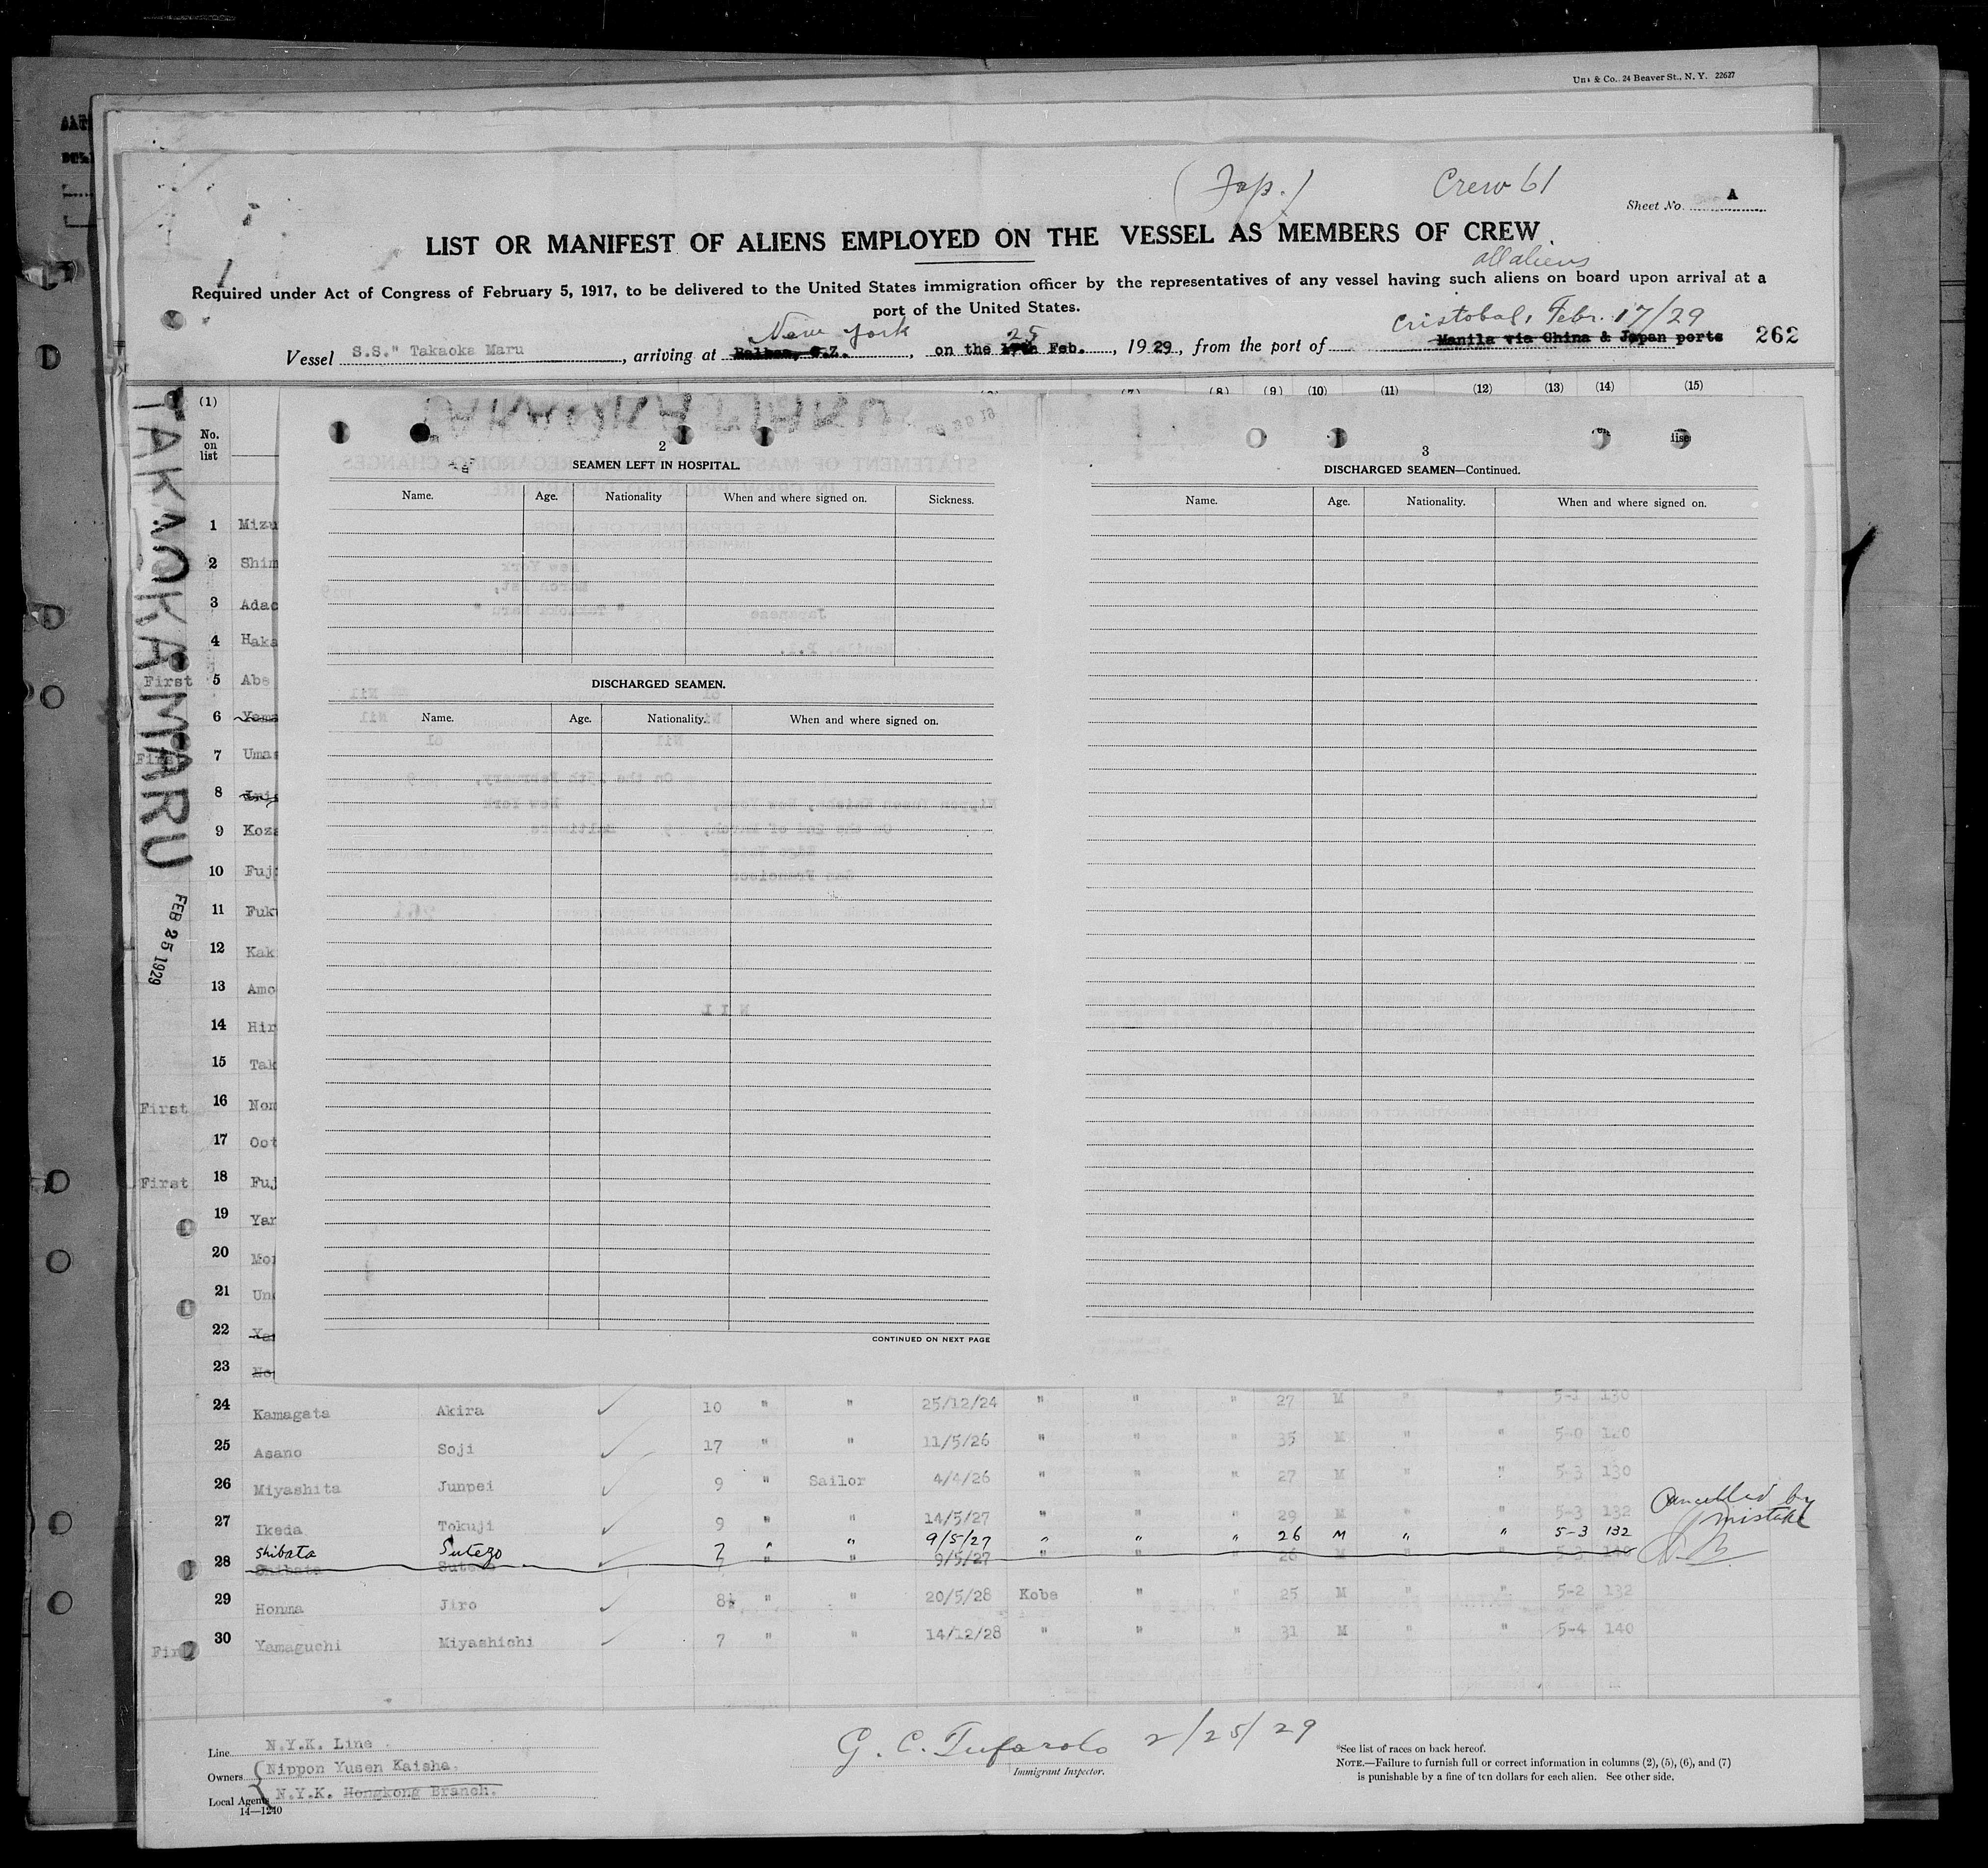 Un & Co., 24 Beaver St., N. Y. 22627
(Jap.) Crew 61
Sheet No. A
LIST OR MANIFEST OF ALIENS EMPLOYED ON THE VESSEL AS MEMBERS OF CREW
all aliens
Required under Act of Congress of February 5, 1917, to be delivered to the United States immigration officer by the representatives of any vessel having such aliens on board upon arrival at a
port of the United States.
New York 25 Cristobal, Febr. 17/29
Vessel S.S." Takaoka Maru, arriving at Balboa, C.Z., on the 17th Feb., 1929, from the port of Manila via China & Japan ports 262
(1) (7) (8) (9) (10) (11) (12) (13) (14) (15)
No. on list
TAKAOKA MARU
FEB 25 1929
2
SEAMEN LEFT IN HOSPITAL.
Name. Age. Nationality When and where signed on. Sickness.
DISCHARGED SEAMEN.
Name. Age. Nationality. When and where signed on.
CONTINUED ON NEXT PAGE
3
DISCHARGED SEAMEN—Continued.
Name. Age. Nationality. When and where signed on.
1 Mizu
2 Shim
3 Adac
4 Haka
First 5 Abe
6 Yama
First 7 Umas
8
9 Koza
10 Fuj
11 Fuk
12 Kak
13 Amo
14 Hir
15 Tak
First 16 Nom
17 Oot
First 18 Fuj
19 Yar
20 Mor
21 Un
22 Ya
23 No
24 Kamagata Akira ✓ 10 " " 25/12/24 " " " 27 M " " 5-1 130
25 Asano Soji ✓ 17 " " 11/5/26 " " " 35 M " " 5-0 120
26 Miyashita Junpei ✓ 9 " Sailor 4/4/26 " " " 27 M " " 5-3 130
27 Ikeda Tokuji ✓ 9 " " 14/5/27 " " " 29 M " " 5-3 132
Shibata Sutezo 7 " " 9/5/27 " " " 26 M " " 5-3 132
Cancelled by mistake
28 Shibata Sutezo ✓ 7 " " 9/5/27 " " " 26 M " " 5-3 140
29 Honma Jiro ✓ 8½ " " 20/5/28 Kobe " " 25 M " " 5-2 132
First 30 Yamaguchi Miyashichi ✓ 7 " " 14/12/28 " " " 31 M " " 5-4 140
Line N.Y.K. Line
Owners Nippon Yusen Kaisha.
Local Agents N.Y.K. Hongkong Branch.
14—1240
G. C. Tufarolo 2/25/29
Immigrant Inspector.
*See list of races on back hereof.
NOTE.—Failure to furnish full or correct information in columns (2), (5), (6), and (7)
is punishable by a fine of ten dollars for each alien. See other side.